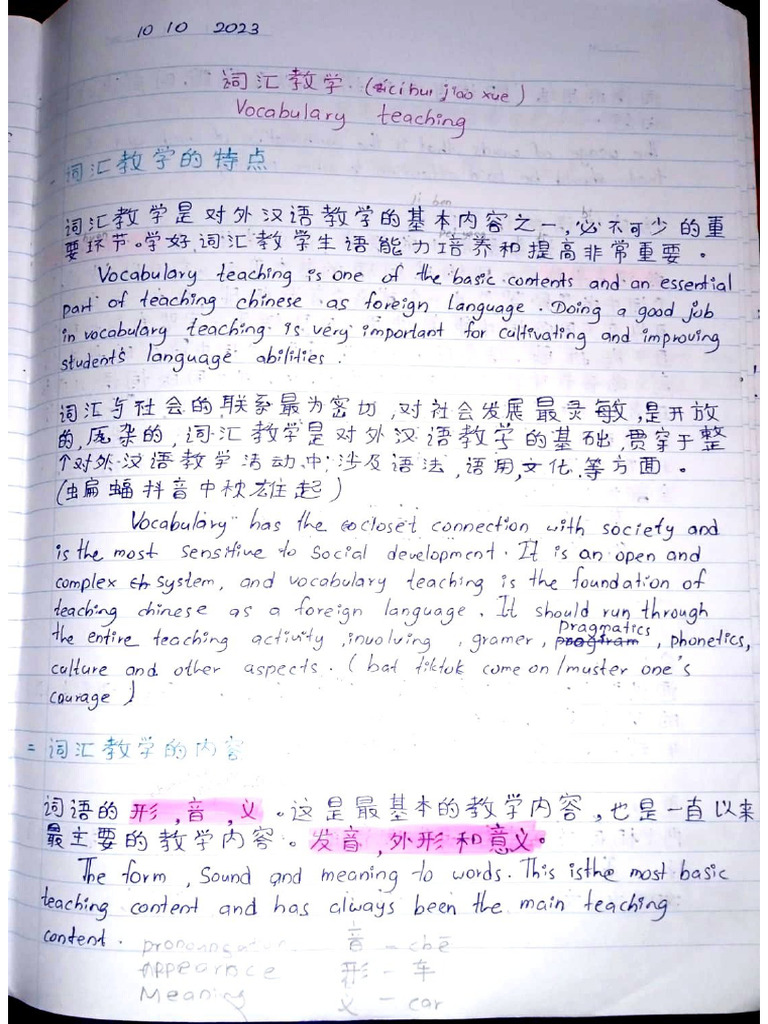 10 10 2023
词汇教学. (cihui jiao xue)
Vocabulary teaching
词汇教学的特点
ji ben
词汇教学是对外汉语教学的基本内容之一,必不可少的重
要环节。学好词汇教学生语能力培养和提高非常重要。
Vocabulary teaching is one of the basic contents and an essential
part of teaching chinese as foreign language. Doing a good job
in vocabulary teaching is very important for cultivating and improving
students language abilities.
词汇与社会的联系最为密切,对社会发展最灵敏,是开放
的,庞杂的,词汇教学是对外汉语教学的基础,贯穿于整
个对外汉语教学活动中,涉及语法,语用,文化,等方面。
(蝙蝠抖音中秋雄起)
Vocabulary has the closet connection with society and
is the most sensitive to social development. It is an open and
complex system, and vocabulary teaching is the foundation of
teaching chinese as a foreign language. It should run through
the entire teaching activity, involving, gramer, pragmatics, phonetics,
culture and other aspects. (bat tiktok come on/muster one's
courage)
= 词汇教学的内容
词语的形,音,义。这是最基本的教学内容,也是一直以来
最主要的教学内容。发音,外形和意义。
The form, Sound and meaning to words. This is the most basic
teaching content and has always been the main teaching
content.
音 - chē
Appearnce 形 - 车
Meaning 义 - car